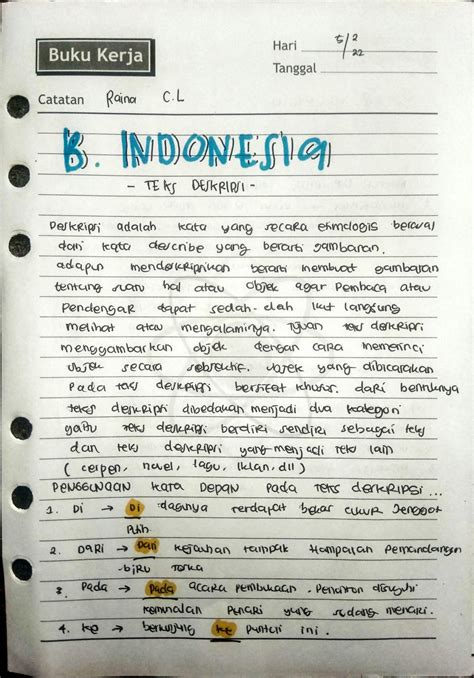 Buku Kerja
Hari 5/2
Tanggal 22
Catatan Raina C.L
B. INDONESIA
- TEKS DESKRIPSI -
Deskripsi adalah kata yang secara etimologis berasal
dari kata describe yang berarti gambaran.
adapun mendeskripsikan berarti membuat gambaran
tentang suatu hal atau objek agar Pembaca atau
Pendengar dapat seolah-olah ikut langsung
melihat atau mengalaminya. Tujuan teks deskripsi
menggambarkan objek dengan cara memerinci
objek secara subjektif. objek yang dibicarakan
Pada teks deskripsi bersifat khusus. dari bentuknya
teks deskripsi dibedakan menjadi dua kategori
yaitu teks deskripsi berdiri sendiri sebagai teks
dan teks deskripsi yang menjadi teks lain
( cerpen, novel, lagu, iklan, dll )
PENGGUNAAN Kata DEPAN Pada TEKS DESKRIPSI ...
1. Di → Di dagunya terdapat bekas cukur Jenggot
Putih.
2. DaRi → Dari kejauhan tampak Hamparan Pemandangan
biru
3. Pada → Pada acara pembukaan. Penonton disuguhi
Penari yang sedang menari.
4. Ke → berkunjung Ke Pantai ini.